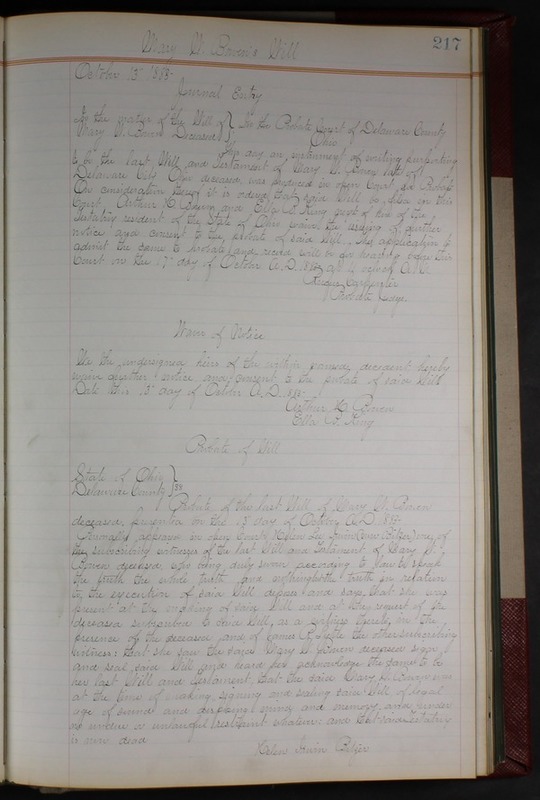 217
Mary W. Bowen's Will
October 15" 188
Journal Entry
In the matter of the Will of } In the Probate Court of Delaware County
Mary W. Bowen Deceased } Ohio
This day an instrument of writing purporting
to be the last Will and Testament of Mary W. Bowen late of
Delaware Ohio deceased, was produced in open Court for Probate
On consideration thereof it is ordered that said Will be filed in this
Court. Arthur H. Bowen and Ella B. King next of kin of the
testatrix resident of the State of Ohio waive the issuing of further
notice and consent to the probate of said Will. The application to
admit the same to probate and record will be for hearing before this
Court on the 17" day of October A.D. 188 at o'clock A.M.
Carpenter
Probate Judge
Waiver of Notice
We the undersigned heirs of the within named decedent hereby
waive further notice and consent to the probate of said Will
Date this 15" day of October A.D. 188
Arthur H. Bowen
Ella B. King
Probate of Will
State of Ohio }
Delaware County } SS
Probate of the last Will of Mary W. Bowen
deceased, on the day of October A.D. 188
Personally appears in open Court Helen Irwin (now Betzer) one of
the subscribing witnesses of the last Will and Testament of Mary W.
Bowen deceased who being duly sworn according to law to speak
the truth the whole truth and nothing but the truth in relation
to the execution of said Will deposes and says that she was
present at the making of said Will and at the request of the
deceased subscribed to said Will, as a witness thereto, in the
presence of the deceased and of James the other subscribing
witness: that she saw the said Mary W. Bowen deceased sign
and seal said Will and heard her acknowledge the same to be
her last Will and Testament, that the said Mary W. Bowen was
at the time of making, signing and sealing said Will of legal
age of sound and disposing mind and memory and under
no undue or unlawful restraint whatever: and that said testatrix
is now dead
Helen Irwin Betzer